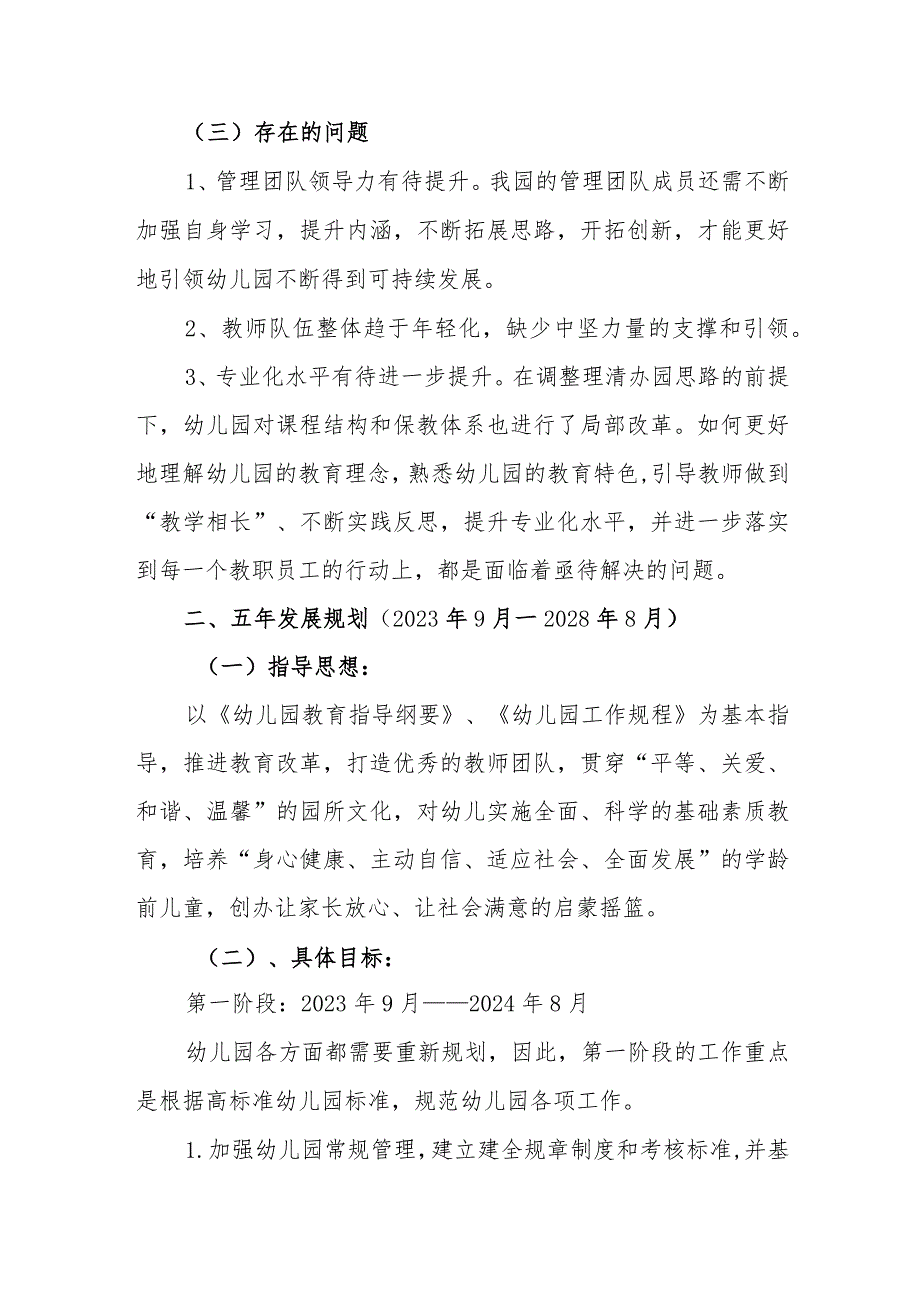 （三）存在的问题
1、管理团队领导力有待提升。我园的管理团队成员还需不断
加强自身学习，提升内涵，不断拓展思路，开拓创新，才能更好
地引领幼儿园不断得到可持续发展。
2、教师队伍整体趋于年轻化，缺少中坚力量的支撑和引领。
3、专业化水平有待进一步提升。在调整理清办园思路的前提
下，幼儿园对课程结构和保教体系也进行了局部改革。如何更好
地理解幼儿园的教育理念，熟悉幼儿园的教育特色,引导教师做到
“教学相长”、不断实践反思，提升专业化水平，并进一步落实
到每一个教职员工的行动上，都是面临着亟待解决的问题。
二、五年发展规划（2023 年 9 月一 2028 年 8 月）
（一）指导思想：
以《幼儿园教育指导纲要》、《幼儿园工作规程》为基本指
导，推进教育改革，打造优秀的教师团队，贯穿“平等、关爱、
和谐、温馨”的园所文化，对幼儿实施全面、科学的基础素质教
育，培养“身心健康、主动自信、适应社会、全面发展”的学龄
前儿童，创办让家长放心、让社会满意的启蒙摇篮。
（二）、具体目标：
第一阶段：2023 年 9 月——2024 年 8 月
幼儿园各方面都需要重新规划，因此，第一阶段的工作重点
是根据高标准幼儿园标准，规范幼儿园各项工作。
1.加强幼儿园常规管理，建立建全规章制度和考核标准,并基